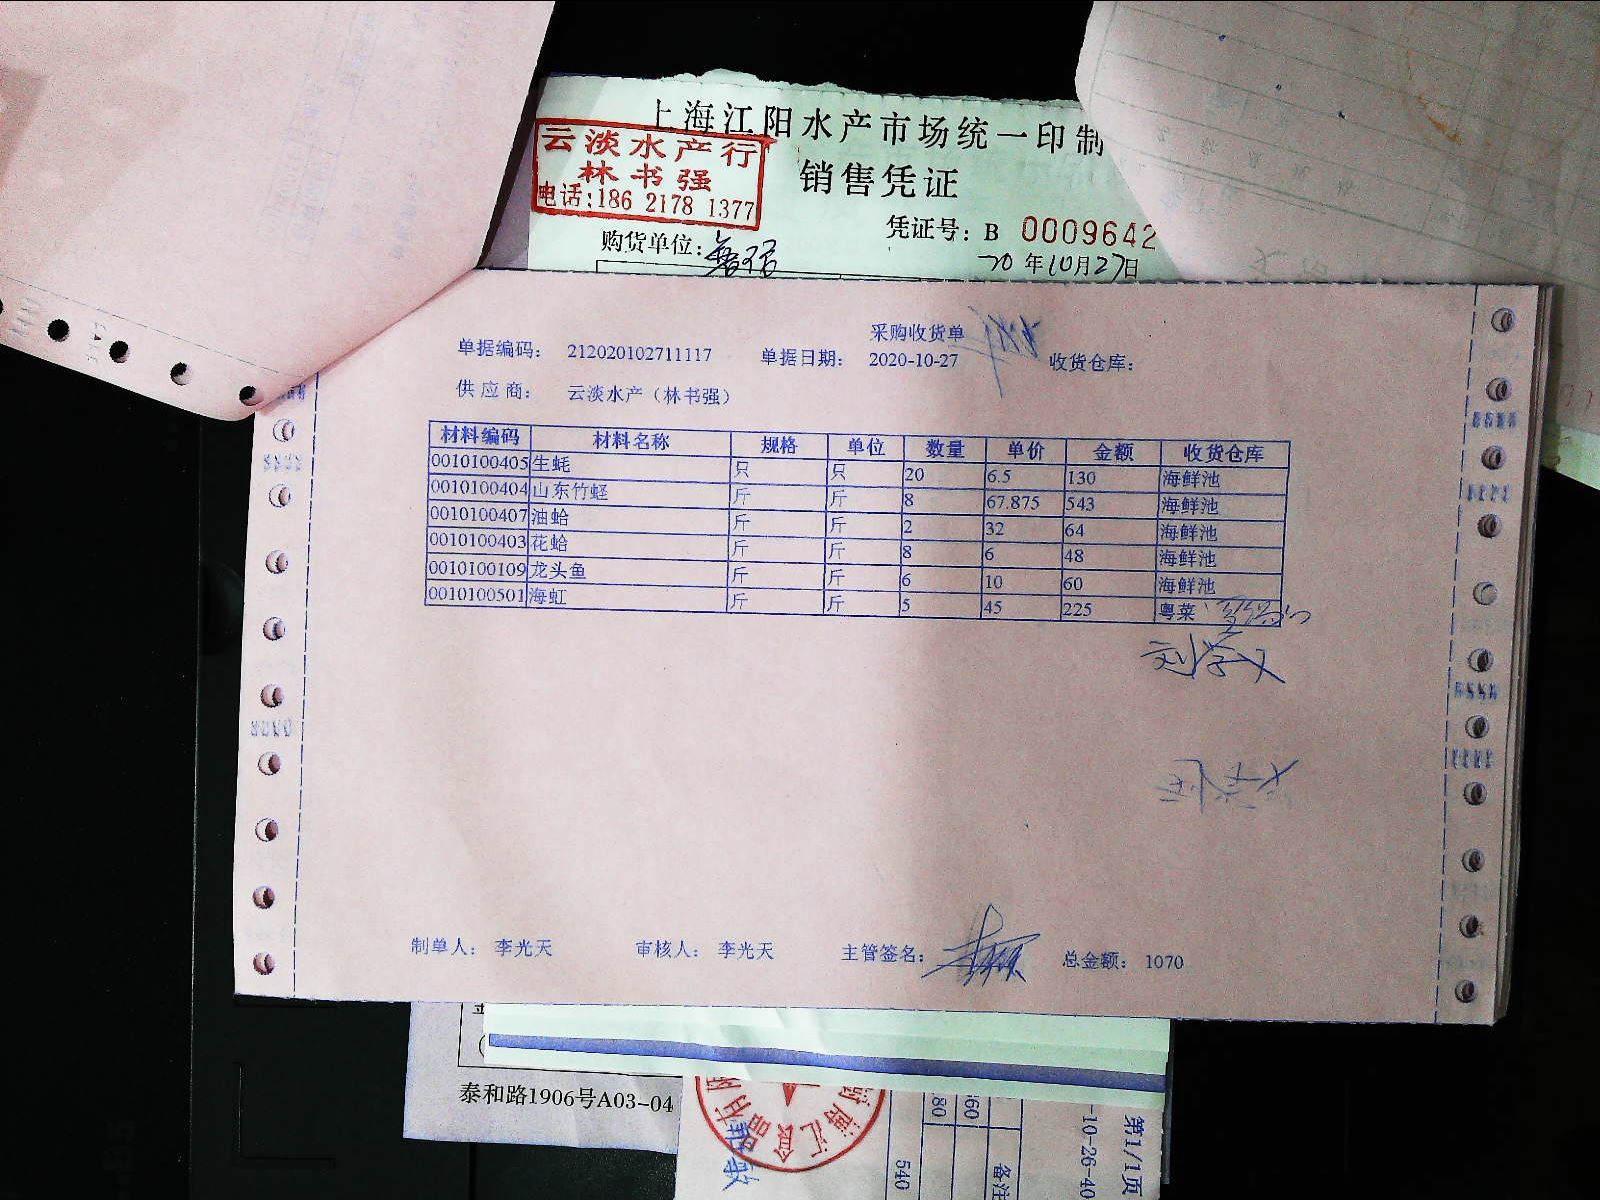 上海江阳水产市场统一印制
云淡水产行
林书强
电话:186 2178 1377
销售凭证
凭证号: B 0009642
购货单位:
20年10月27日
采购收货单
单据编码: 212020102711117 单据日期: 2020-10-27 收货仓库:
供应商: 云淡水产（林书强）
材料编码 材料名称 规格 单位 数量 单价 金额 收货仓库
0010100405 生蚝 只 只 20 6.5 130 海鲜池
0010100404 山东竹蛏 斤 斤 8 67.875 543 海鲜池
0010100407 油蛤 斤 斤 2 32 64 海鲜池
0010100403 花蛤 斤 斤 8 6 48 海鲜池
0010100109 龙头鱼 斤 斤 6 10 60 海鲜池
0010100501 海虹 斤 斤 5 45 225 粤菜
刘学义
制单人: 李光天 审核人: 李光天 主管签名: 总金额: 1070
泰和路1906号A03-04
第1/1页
-10-26-40
备注
60
80
540